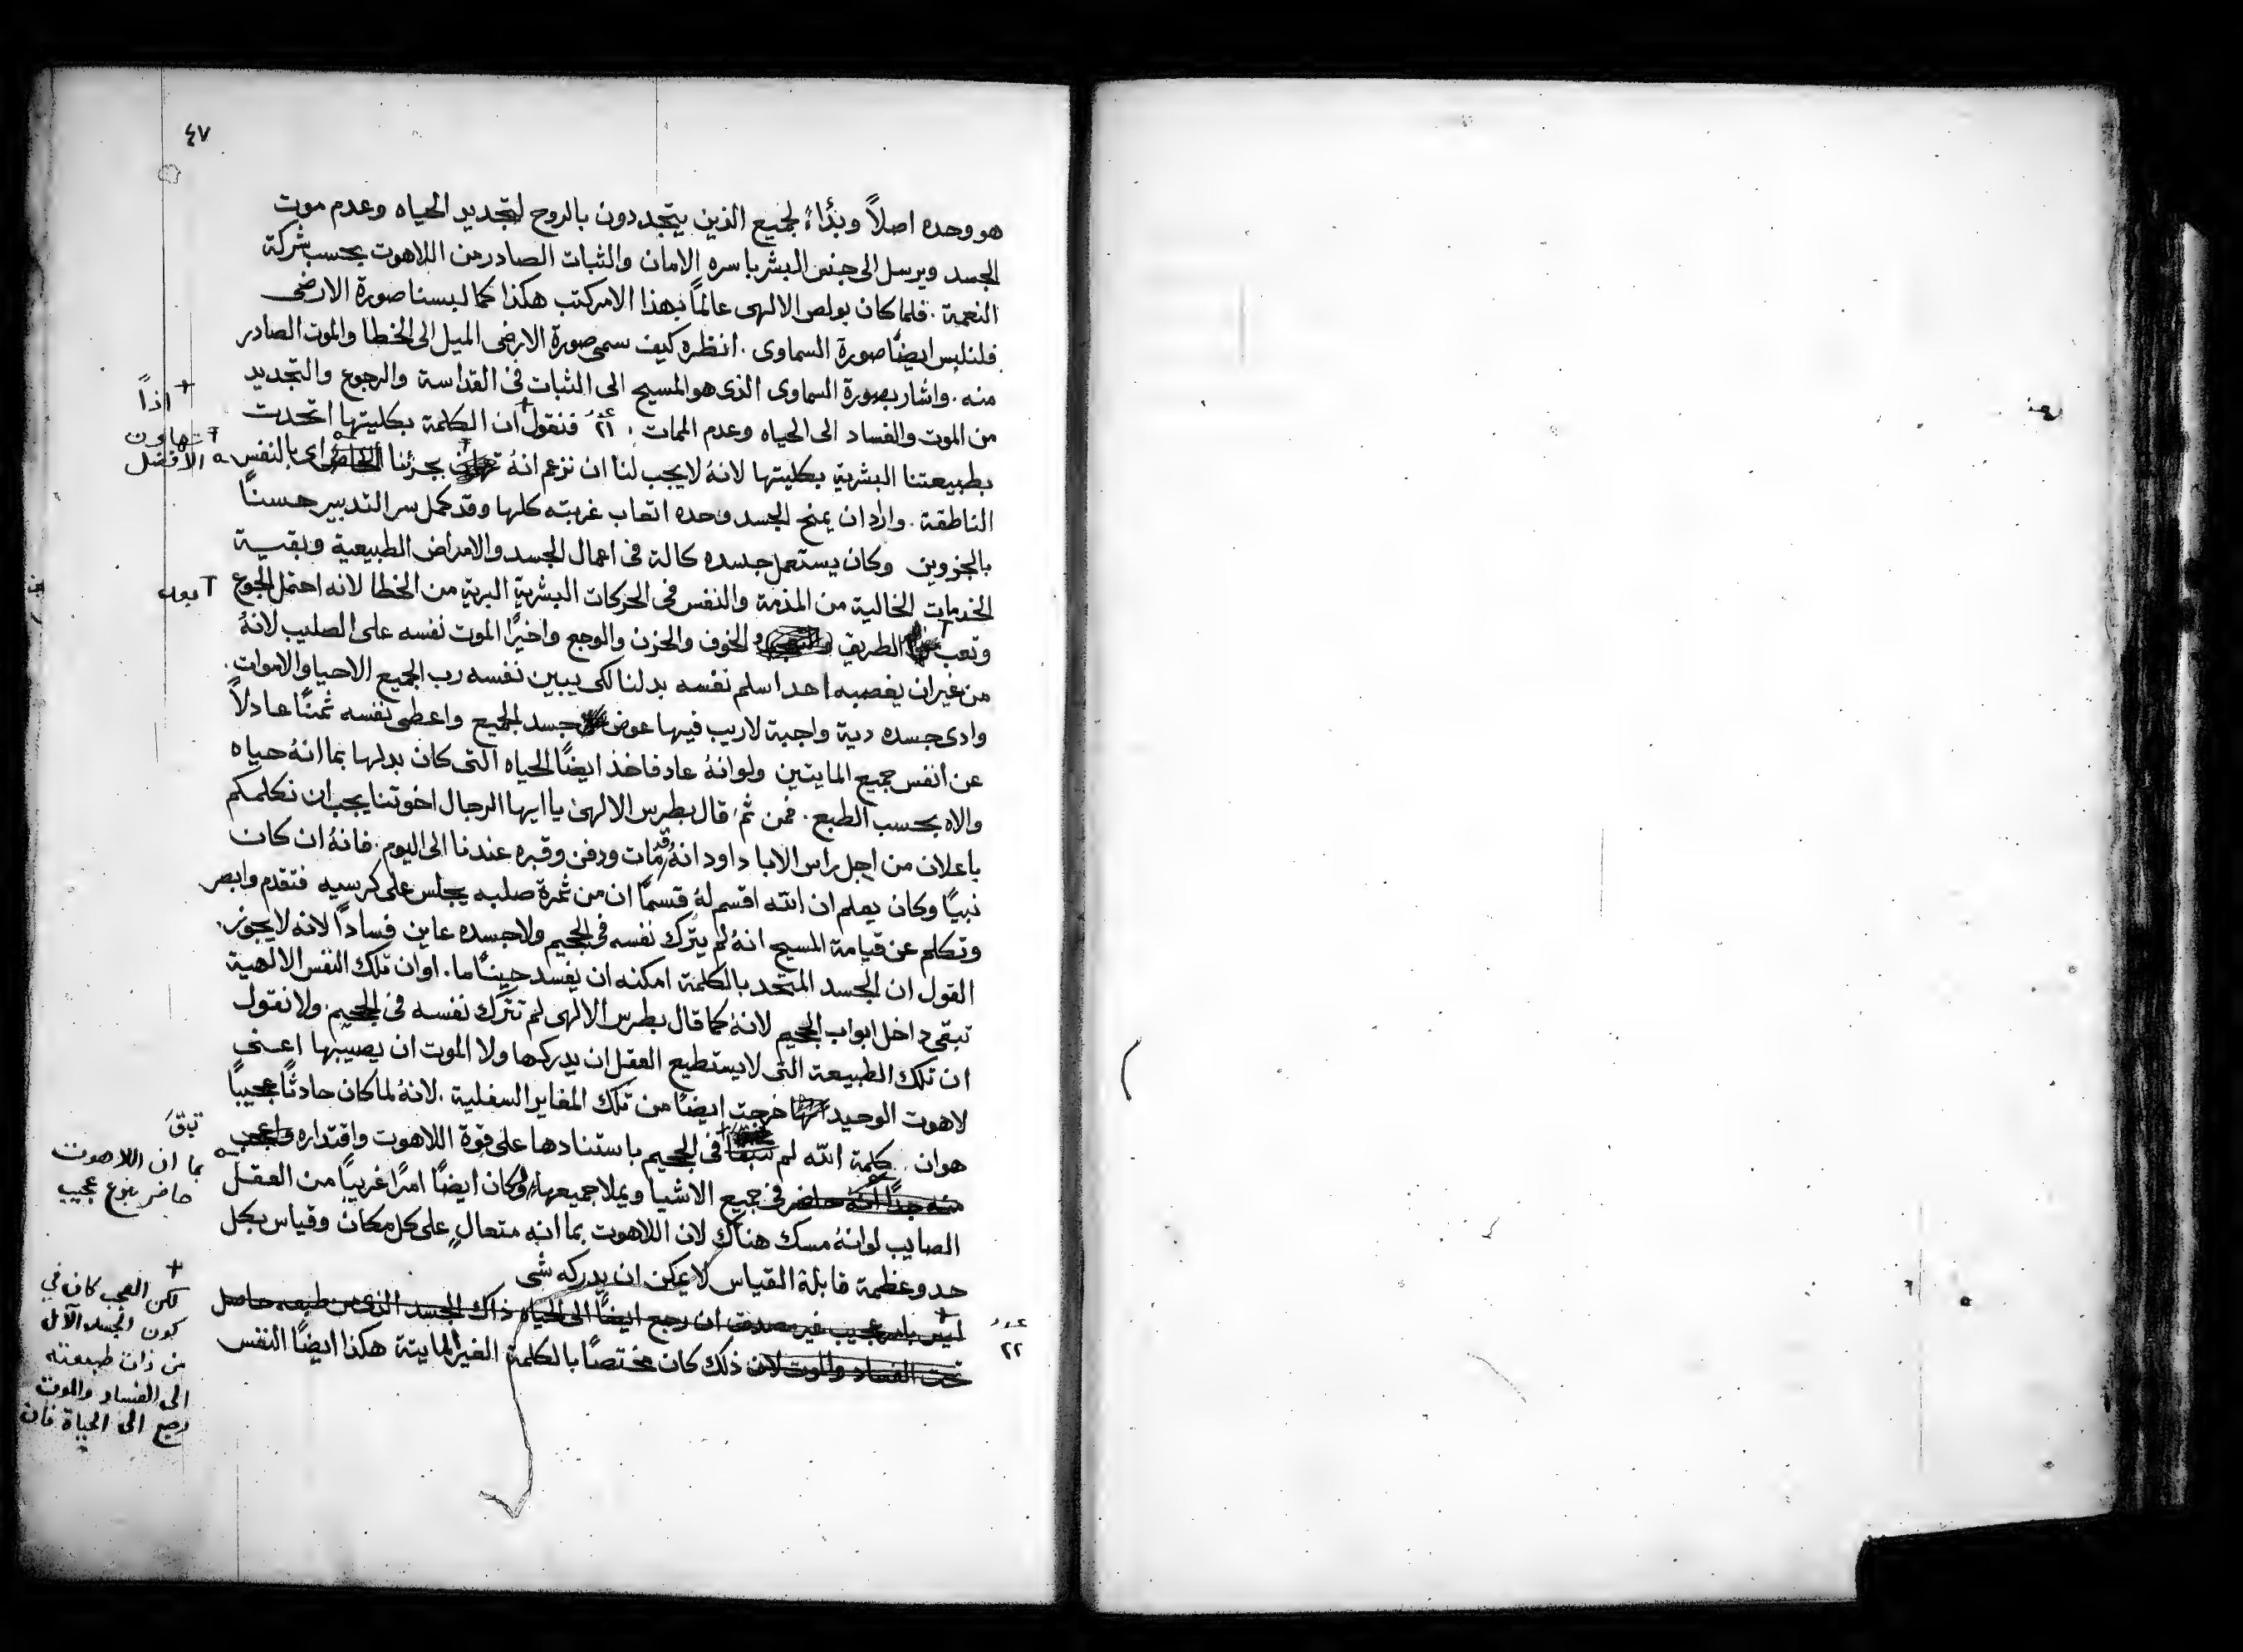 ٤٧
هو وحده اصلاً وبدًاءً لجميع الذين يتجددون بالروح لتجديد الحياه وعدم موت
الجسد ويرسل الى جنس البشر باسره الامان والثبات الصادر من اللاهوت بحسب شركة
النعمة . فلما كان بولص الالهى عالماً بهذا الامر كتب هكذا كما لبسنا صورة الارضى
فلنلبس ايضًا صورة السماوى . انظره كيف سمى صورة الارضى الميل الى الخطا والموت الصادر
منه . واشار بصورة السماوى الذى هو المسيح الى الثبات فى القداسة والرجوع والتجديد
من الموت والفساد الى الحياه وعدم الممات . عدد ٢١ فنقول ان الكلمة بكليتها اتحدت
بطبيعتنا البشرية بكليتها لانهُ لا يجب لنا ان نزعم انهُ بجزئنا اى بالنفس
الناطقة . واراد ان يمنح الجسد وحده اتعاب غربته كلها وقد كمل سر التدبير حسنًا
بالجزوين وكان يستعمل جسده كالة فى اعمال الجسد والامراض الطبيعية وبقية
الخدمات الخالية من المذمة والنفس فى الحركات البشرية البرية من الخطا لانه احتمل الجوع
وتعب الطريق الخوف والحزن والوجع واخيرًا الموت نفسه على الصليب لانهُ
من غير ان يغصبه احد اسلم نفسه بدلنا لكى يبين نفسه رب الجميع الاحيا والاموات .
وادى جسده دية واجبة لا ريب فيها عوض جسد الجميع واعطى نفسه ثمنًا عادلاً
عن انفس جميع المايتين ولو انهُ عاد فاخذ ايضًا الحياه التى كان بدلها بما انهُ حياه
والاه بحسب الطبع . فمن ثم قال بطرس الالهى يا ايها الرجال اخوتنا يجب ان نكلمكم
باعلان من اجل راس الابا داود انهُ قد مات ودفن وقبره عندنا الى اليوم . فانهُ ان كان
نبيًا وكان يعلم ان الله اقسم لهُ قسمًا ان من ثمرة صلبه يجلس على كرسيه فتقدم وابصر
وتكلم عن قيامة المسيح انهُ لم يُترك نفسه فى الجحيم ولا جسده عاين فسادًا لانه لا يجوز
القول ان الجسد المتحد بالكلمة امكنه ان يفسد حينًا ما . او ان تلك النفس الالهية
تبقى داخل ابواب الجحيم لانهُ كما قال بطرس الالهى لم تترك نفسه فى الجحيم . ولا نقول
ان تلك الطبيعة التى لا يستطيع العقل ان يدركها ولا الموت ان يصيبها اعنى
لاهوت الوحيد انها خرجت ايضًا من تلك المغاير السفلية . لانهُ لما كان حادثًا عجيبًا
هو ان كلمة الله لم فى الجحيم باستنادها على قوة اللاهوت واقتداره واعجب
منه جدًا انهُ حاضر فى جميع الاشيا ويملا جميعها ولكان ايضًا امرًا غريبًا من العقل
الصايب لو انهُ مسك هناك لان اللاهوت بما انه متعالٍ على كل مكان وقياس بكل
حد وعظمة قابلة القياس لا يمكن ان يدركه شى
ليس بامر عجيب غير مصدق ان رجع ايضًا الى الحياه ذاك الجسد الذى من طبعه حاصل
تحت الفساد والموت لان ذلك كان مختصًا بالكلمة الغير المايتة هكذا ايضًا النفس
عدد
٢٢
+ اذاً
تهاون
الافضل
تبقَ
بما ان اللاهوت
حاضر بنوع عجيب
+
لكن العجب كان في
كون الجسد الآل
من ذات طبيعته
الى الفساد والموت
رجع الى الحياة فان